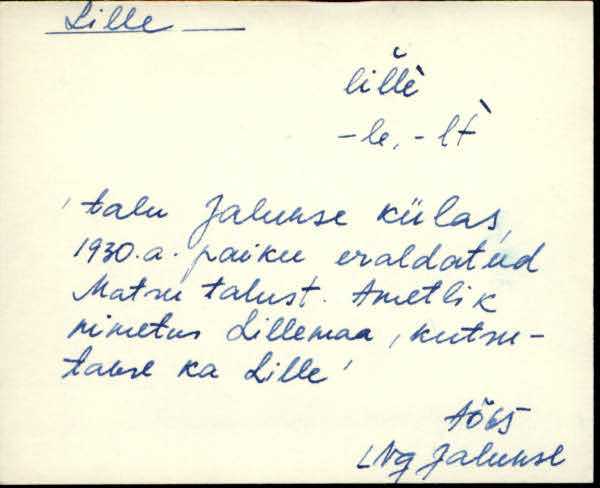 Lille —
lĭllè
-le, -lt
'talu Jalukse külas,
1930.a. paiku eraldatud
Matsu talust. Ametlik
nimetus Lillemaa, kutsu-
takse ka Lille'
LNg Jalukse